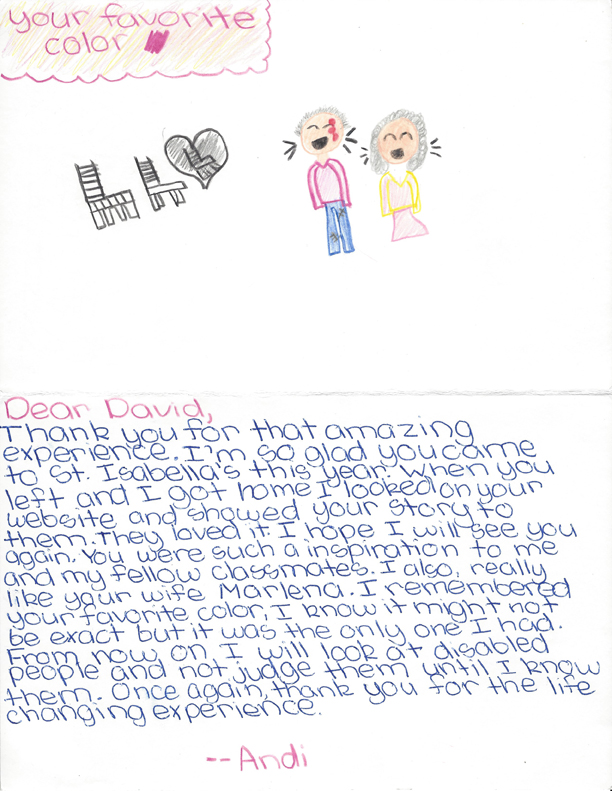 your favorite
color
Dear David,
Thank you for that amazing
experience. I'm so glad you came
to St. Isabella's this year. When you
left and I got home I looked on your
website and showed your story to
them. They loved it. I hope I will see you
again. You were such a inspiration to me
and my fellow classmates. I also, really
like your wife Marlena. I remembered
your favorite color, I know it might not
be exact but it was the only one I had.
From now on, I will look at disabled
people and not judge them until I know
them. Once again, thank you for the life
changing experience.
--Andi